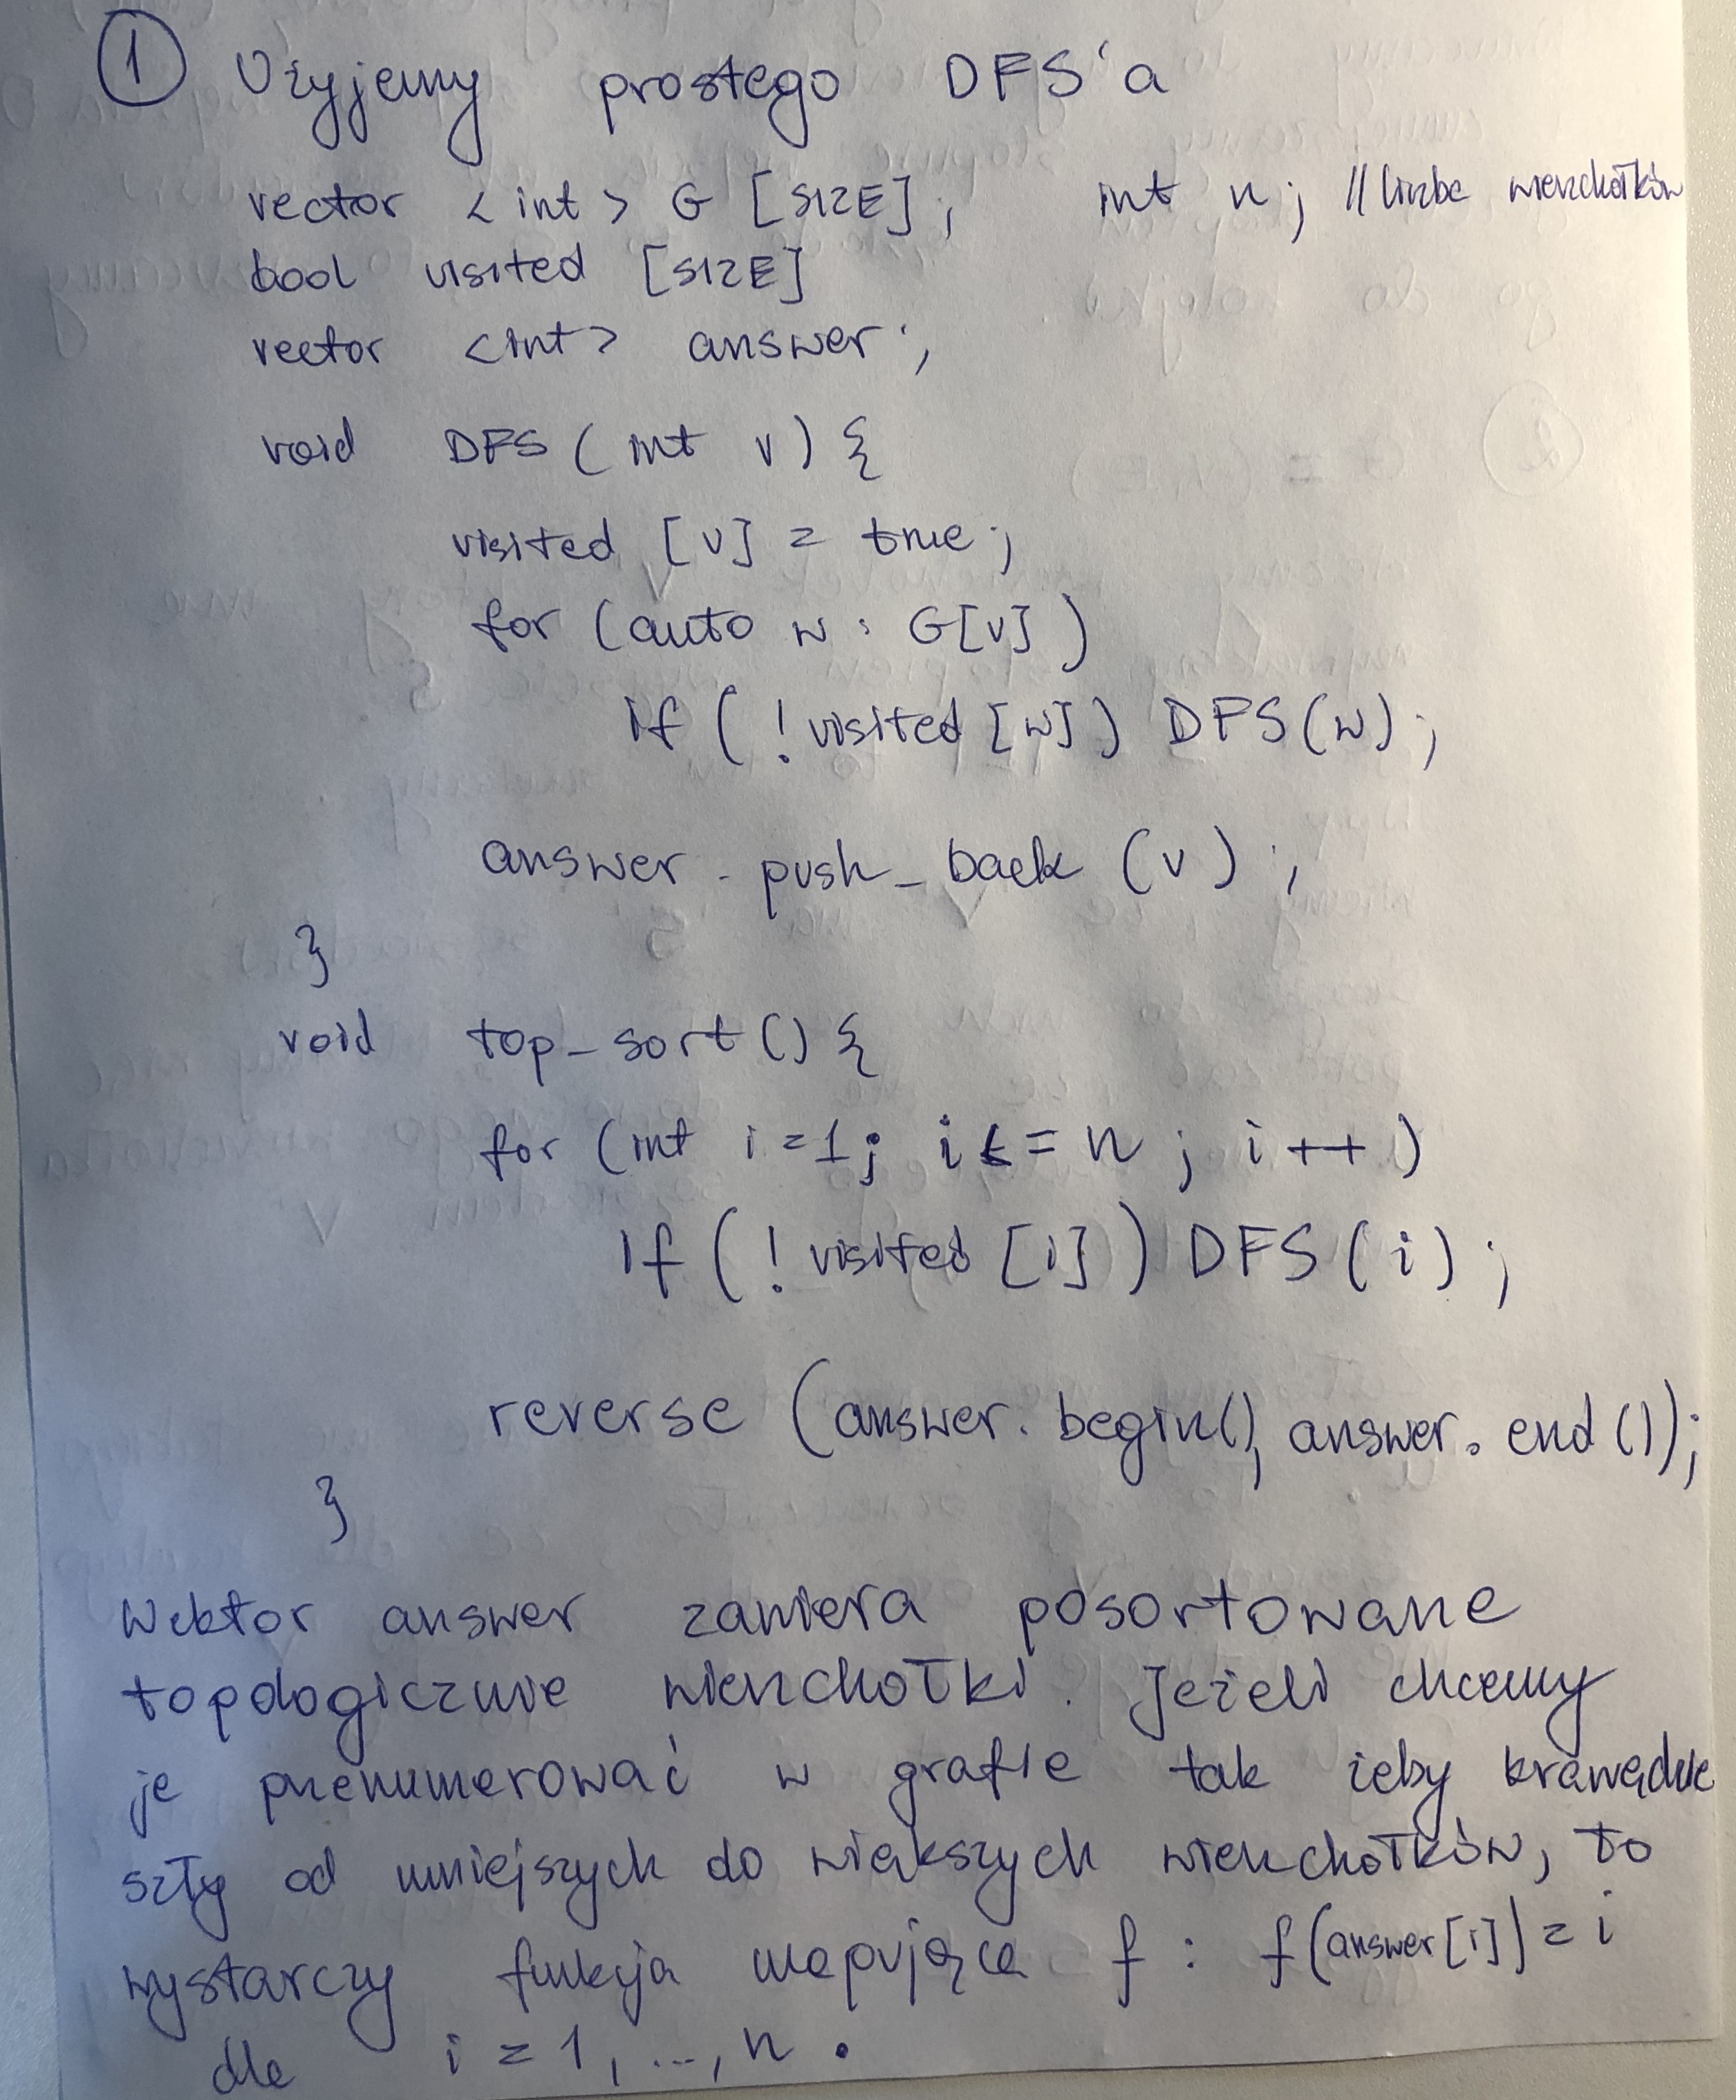 1 Użyjemy prostego DFS'a
vector <int> G [SIZE]; int n; // liczba wierzchołków
bool visited [SIZE]
vector <int> answer;
void DFS (int v) {
visited [v] = true;
for (auto w : G[v])
if (!visited [w]) DFS(w);
answer.push_back (v);
}
void top_sort() {
for (int i=1; i<=n; i++)
if (!visited [i]) DFS(i);
reverse (answer.begin(), answer.end());
}
Wektor answer zawiera posortowane
topologicznie wierzchołki. Jeżeli chcemy
je przenumerować w grafie tak żeby krawędzie
szły od mniejszych do większych wierzchołków, to
wystarczy funkcja mapująca f : f(answer[i]) = i
dla i = 1, ..., n.